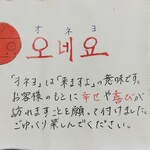 オネヨ
오네요
「オネヨ」は「来ますよ」の意味です。
お客様のもとに幸せや喜びが
訪れますことを願って付けました。
ごゆっくり楽しんでください。